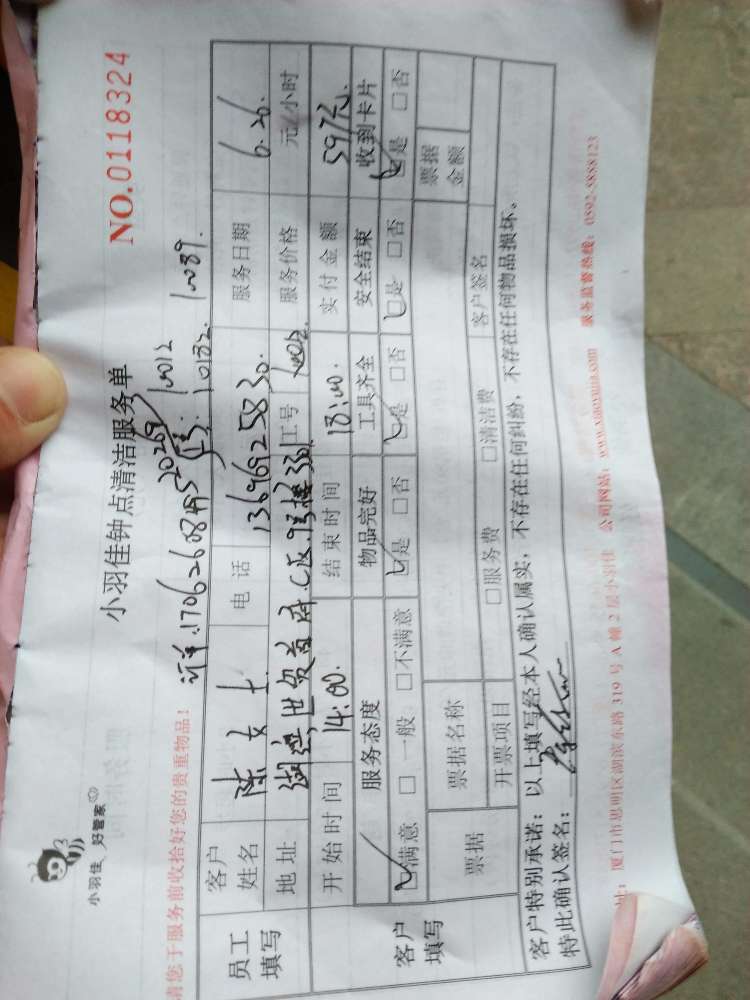 小羽佳 好管家
小羽佳钟点清洁服务单
NO.0118324
请您于服务前收拾好您的贵重物品!
10182. 10089.
员工填写
客户姓名 陈女士 电话 13696925830. 服务日期 6.26.
地址 C区 工号 服务价格 元/小时
客户填写
开始时间 14:00. 结束时间 18:00. 实付金额 597元.
服务态度 物品完好 工具齐全 安全结束 收到卡片
☑满意 □一般 □不满意 ☑是 □否 ☑是 □否 ☑是 □否 ☑是 □否
票据 票据名称 票据金额
开票项目 □服务费 □清洁费 客户签名
客户特别承诺:以上填写经本人确认属实,不存在任何纠纷,不存在任何物品损坏。
特此确认签名:
址:厦门市思明区湖滨东路 319 号 A 幢 2 层小羽佳 公司网站:www.xiaoyujia.com 服务监督热线:0592-5888123